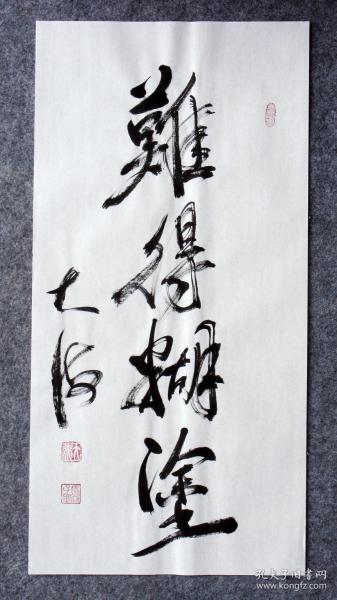 難得糊塗
大海
孔夫子旧书网
www.kongfz.com